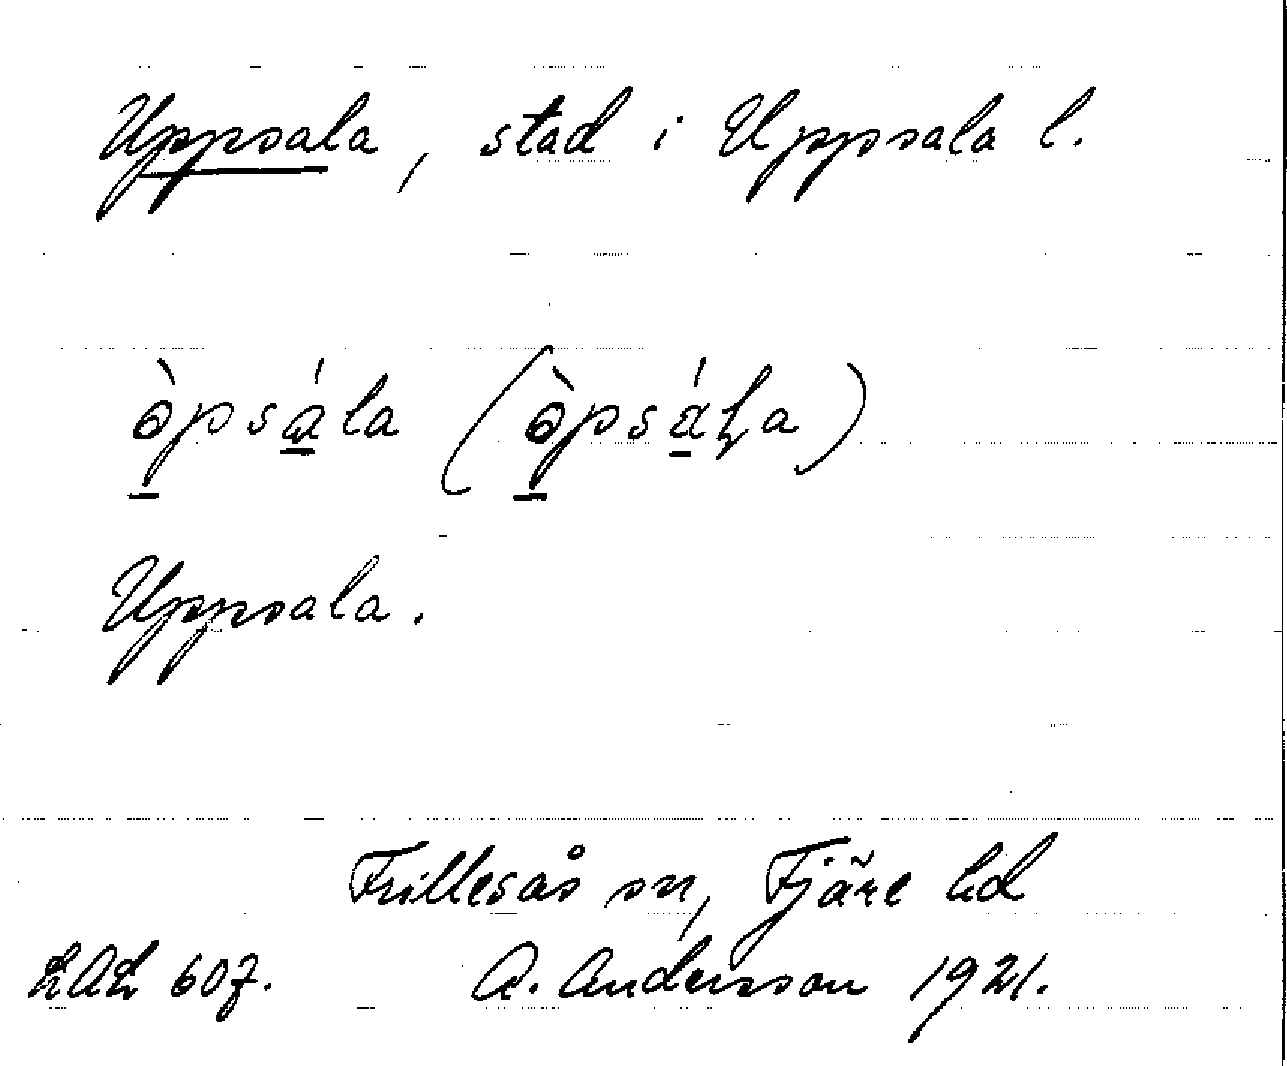 Uppsala, stad i Uppsala l.
òpsála (òpsáḷa)
Uppsala.
Frillesås sn, Fjäre hd
LAL 607. A. Andersson 1921.